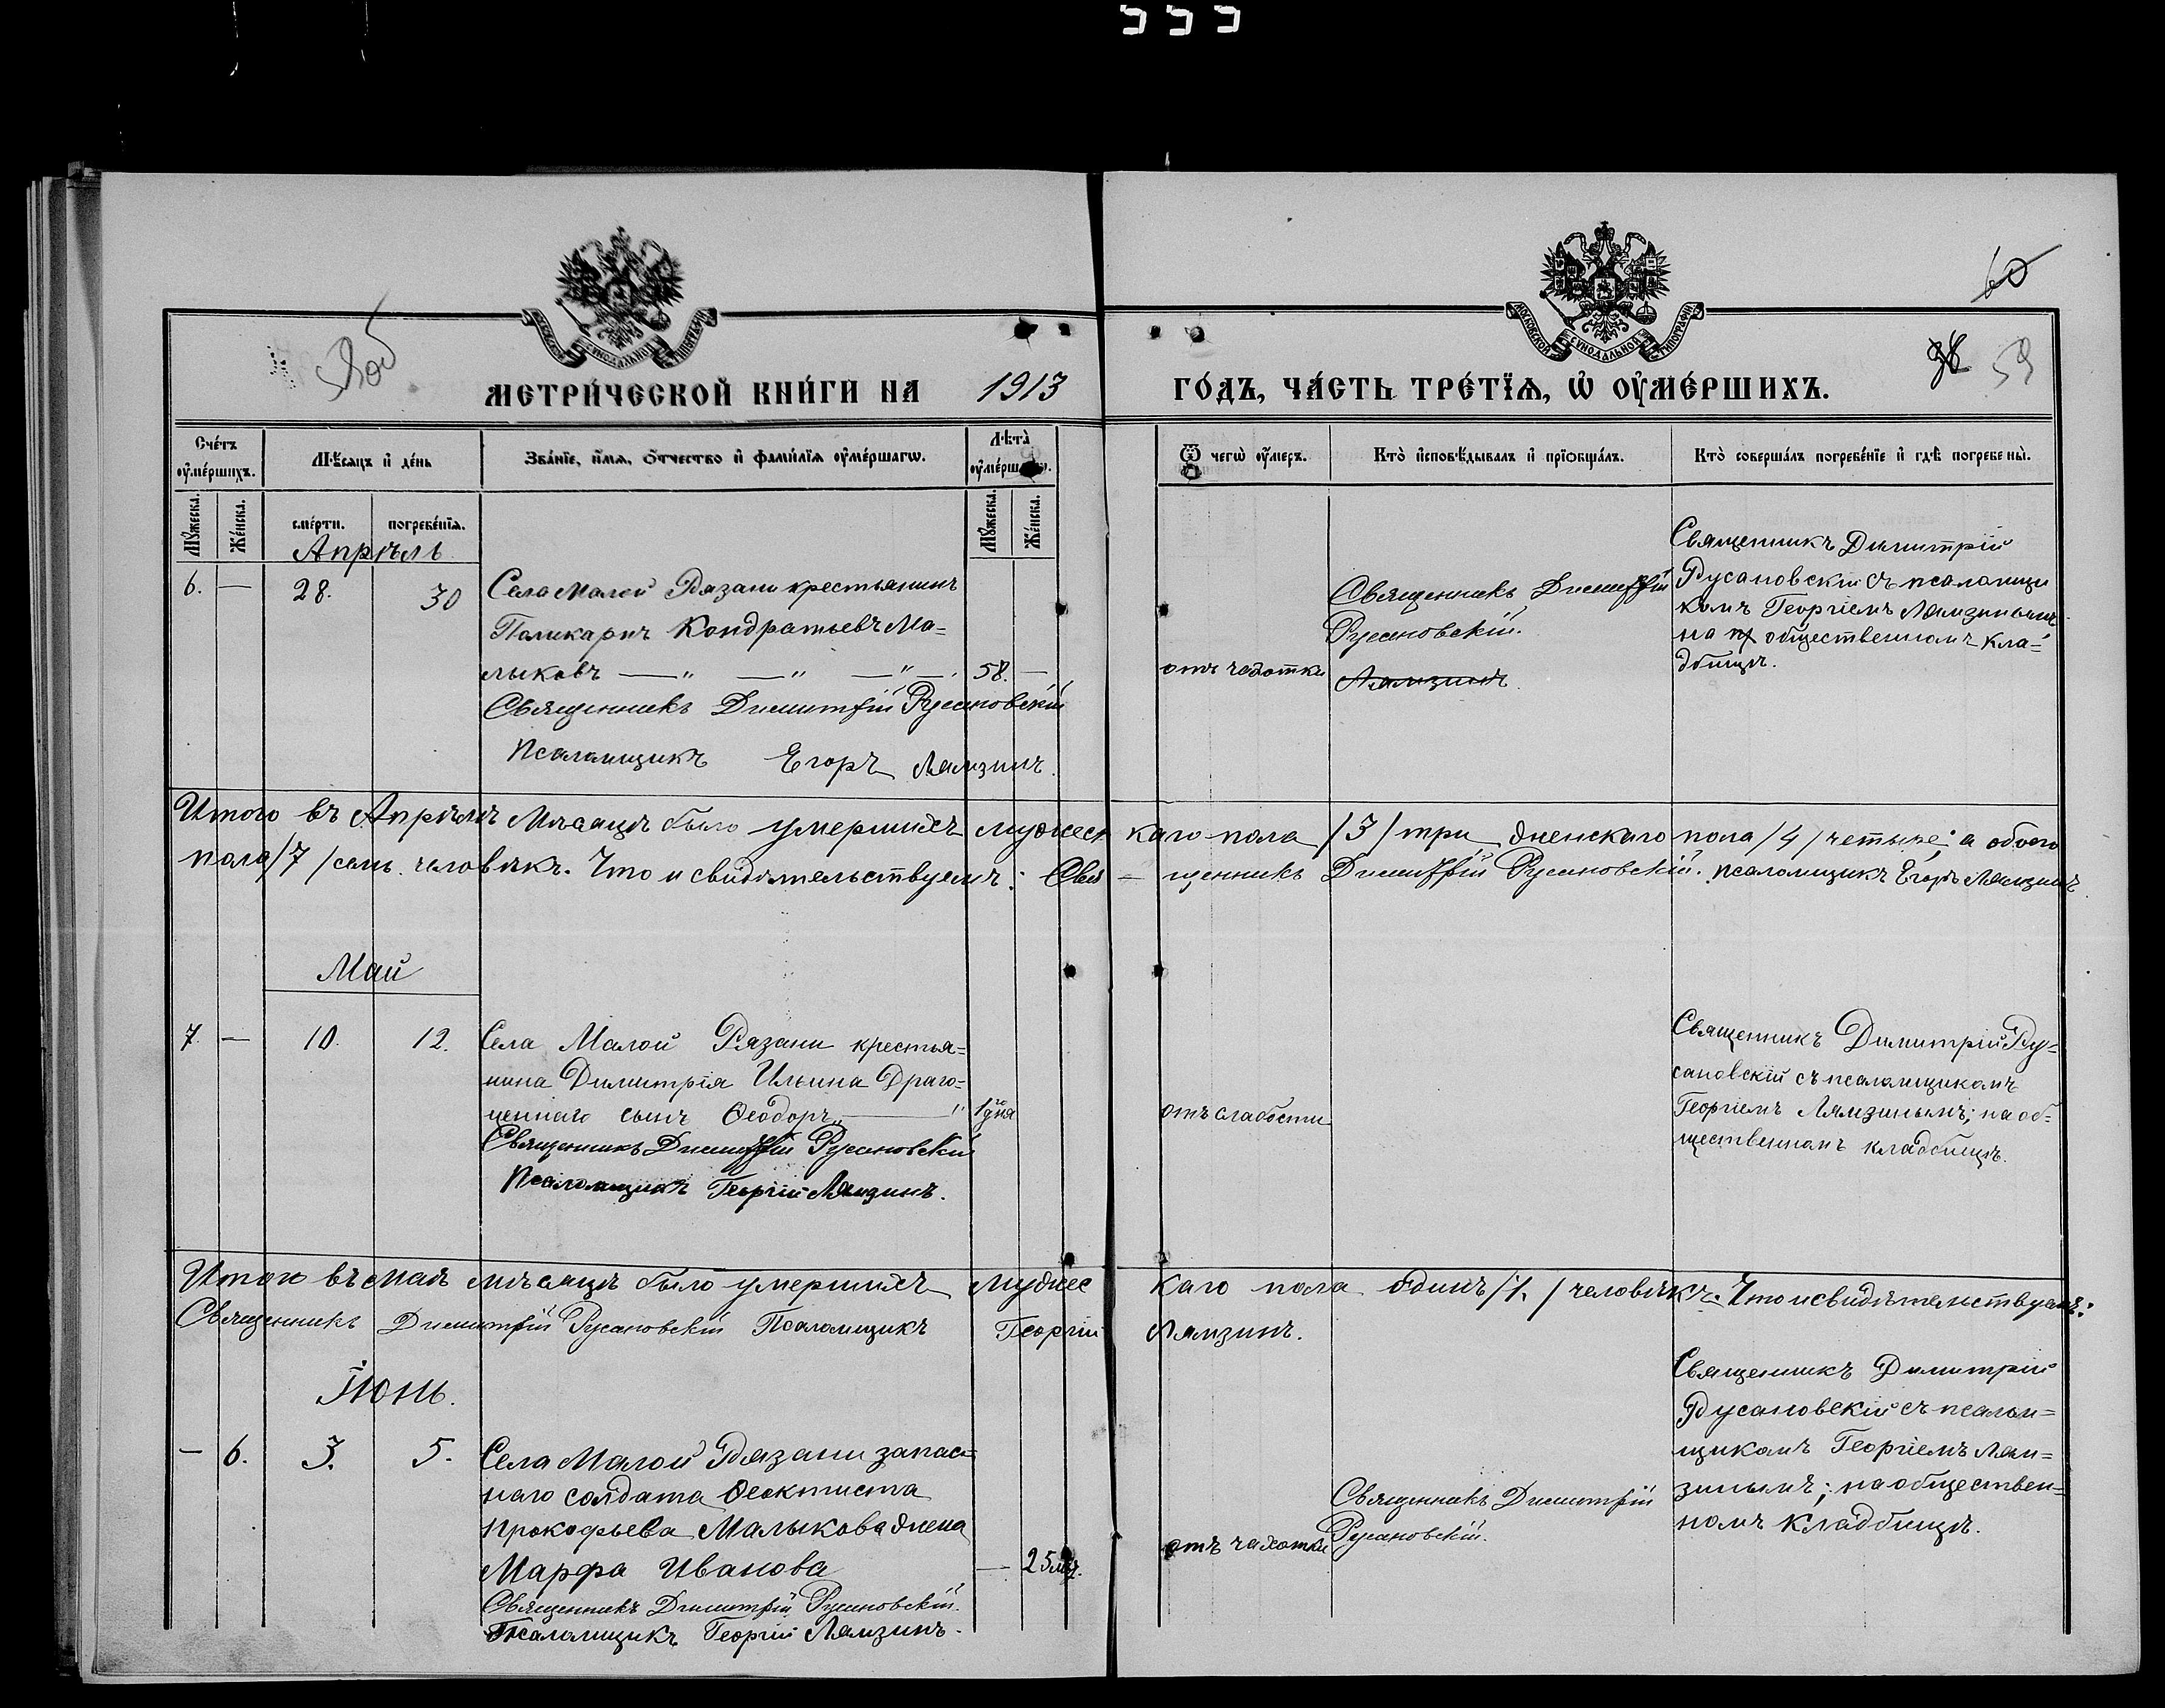 60
59
МОСКОВСКОЙ СѴНОДАЛЬНОЙ ТИПОГРАФІИ
МОСКОВСКОЙ СѴНОДАЛЬНОЙ ТИПОГРАФІИ
МЕТРИ́ЧЕСКОЙ КНИ́ГИ НА 1913 ГО́ДЪ, ЧА́СТЬ ТРЕ́ТЇѦ, Ѡ҆ ОУ҆МЕ́РШИХЪ.
Сче́тъ оу҆ме́ршихъ.
Мѣ́сяцъ и҆ де́нь
Зва́нїе, и҆́мѧ, ѻ҆́тчество и҆ фами́лїѧ оу҆ме́ршагѡ.
Лѣ́та оу҆ме́ршагѡ.
Ѿ чегѡ̀ оу҆́меръ.
Кто̀ и҆сповѣ́дывалъ и҆ прїѡбща́лъ.
Кто̀ соверша́лъ погребе́нїе и҆ гдѣ̀ погребены̀.
Мꙋ́жеска.
Же́нска.
сме́рти.
погребе́нїѧ.
Мꙋ́жеска.
Же́нска.
Апрѣль
6. — 28. 30
Села Малой Рязани крестьянинъ
Поликарпъ Кондратьевъ Ма=
лыковъ — " — " — " — 58. —
Священникъ Димитрій Русановскій
Псаломщикъ Егоръ Лямзинъ.
отъ чахотки
Священникъ Димитрій
Русановскій.
Лямзинъ.
Священникъ Димитрій
Русановскій съ псаломщи
комъ Георгіемъ Лямзинымъ
на общественномъ кла=
дбищѣ.
Итого въ Апрѣлѣ Мѣсяцѣ было умершихъ мужескаго пола /3/ три, женскаго пола /4/ четыре; а обоего
пола /7/ семь человѣкъ. Что и свидѣтельствуемъ: Свя-щенникъ Димитрій Русановскій. Псаломщикъ Егоръ Лямзинъ
Май
7. — 10. 12.
Села Малой Рязани крестья=
нина Димитрія Ильина Драго=
ценнаго сынъ Ѳеодоръ — " 1го дня
Священникъ Димитрій Русановскій
Псаломщикъ Георгій Лямзинъ.
отъ слабости
Священникъ Димитрій Ру=
сановскій съ псаломщикомъ
Георгіемъ Лямзинымъ; на об=
щественномъ кладбищѣ.
Итого въ Маѣ мѣсяцѣ было умершихъ мужескаго пола одинъ /1./ человѣкъ. Что и свидѣтельствуемъ:
Священникъ Димитрій Русановскій Псаломщикъ Георгій Лямзинъ.
Іюнь.
— 6. 3. 5.
Села Малой Рязани запас=
наго солдата Ѳеоктиста
Прокофьева Малыкова жена
Марфа Иванова — 25
Священникъ Димитрій Русановскій.
Псаломщикъ Георгій Лямзинъ.
отъ чахотки
Священникъ Димитрій
Русановскій.
Священникъ Димитрій
Русановскій съ псалом=
щикомъ Георгіемъ Лям=
зинымъ; на обществен=
номъ кладбищѣ.